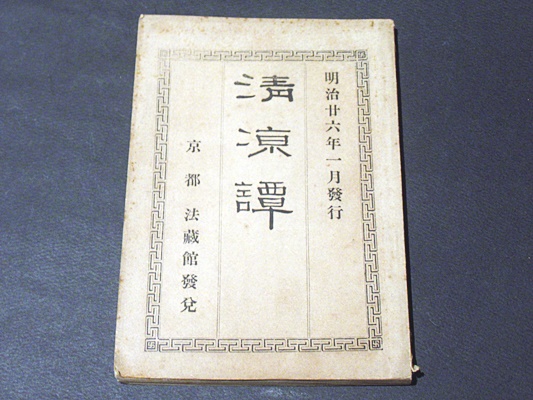 明治廿六年一月發行
淸凉譚
京都 法藏館發兌